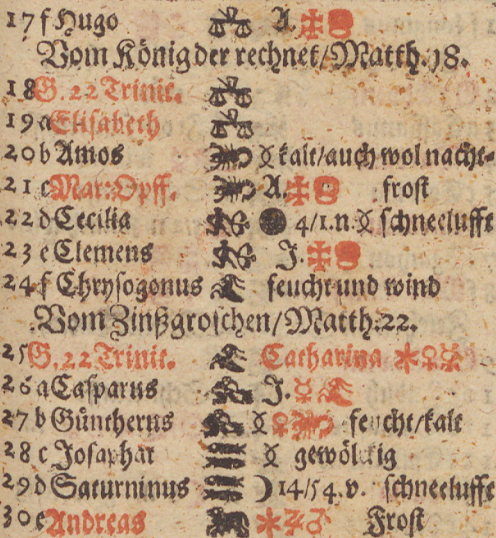 17 f Hugo A.
Vom König der rechnet/Matth. 18.
18 G. 22 Trinit.
19 a Elisabeth
20 b Amos ☿ kalt/auch wol nacht-
21 c Mar: Opff. A. frost
22 d Cecilia 4/1. n. ☿ schneelufft
23 e Clemens J.
24 f Chrysogonus feucht und wind
Vom Zinßgroschen/Matth: 22.
25 G. 22 Trinit. Catharina
26 a Casparus J.
27 b Güntherus feucht/kalt
28 c Josaphat gewölckig
29 d Saturninus ☽ 14/54. v. schneelufft
30 e Andreas Frost